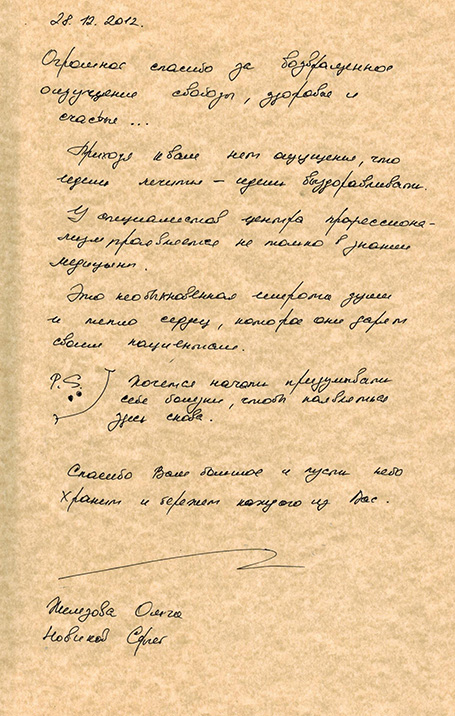 28.12.2012.
Огромное спасибо за возвращенное
ощущение свободы, здоровье и
счастье...
Приходя к вам нет ощущение, что
идешь лечиться – идешь выздоравливать.
У специалистов центра профессиона-
лизм проявляется не только в знании
медицины.
Это необыкновенная широта души
и тепло сердец, которое они дарят
своим пациентам.
P.S. Хочется начать придумывать
себе болезни, чтобы появляться
здесь снова.
Спасибо Вам большое и пусть небо
хранит и бережет каждого из Вас.
Железова Ольга
Новиков